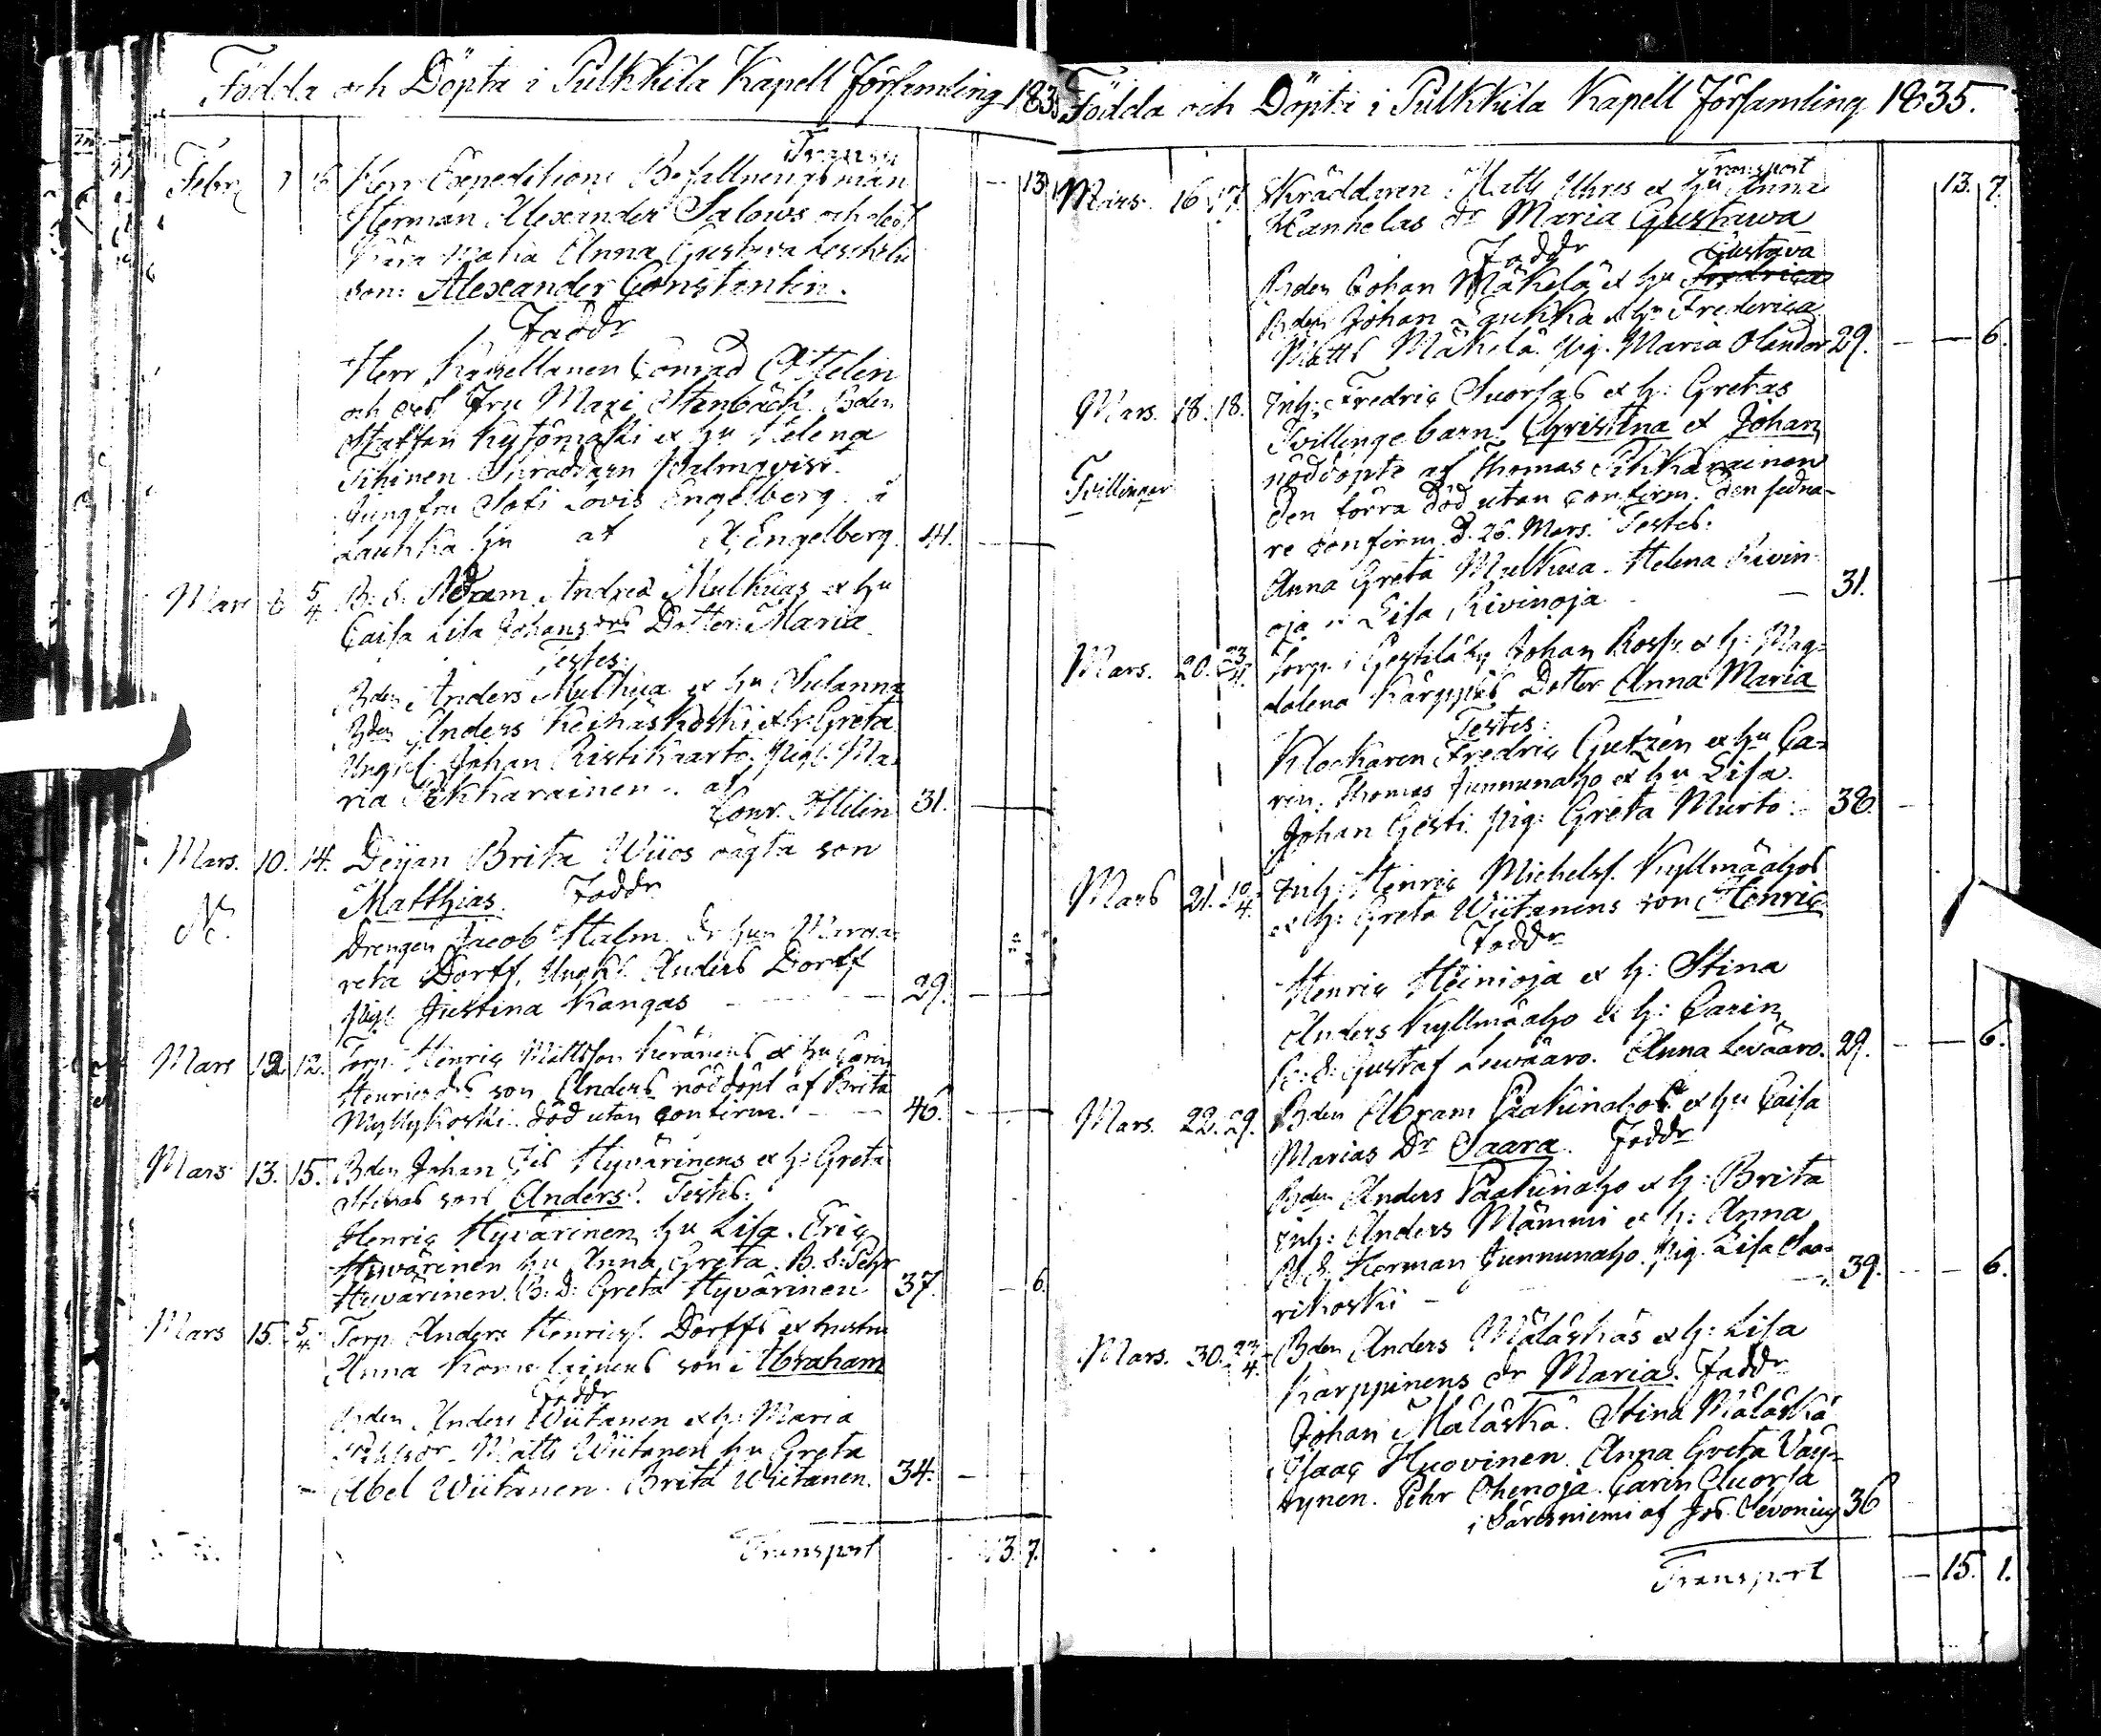 Födda och Döpta i Pulkkila Kapell Församling 183
Transp
Febr. 16 Herr Expeditions Befallningsman 13.
Herman Alexander Salows och dess
Kära Maka Anna Gustava
son: Alexander Constantin.
Faddr
Herr Kapellanen Conrad Ottelin
och dess Fru Mari Stenbäck. Bden
Staffan Kytömäki et hu Helena
Tihinen. Skräddarn Palmqvist.
Jungfru Sofi Lovis Engelberg. i
Laukka hu af Engelberg. 41.
Mars 6 5/4 B: S. Adam Andreæ Mulkuas et hu
Caisa Lisa Johans Dotter Maria
Testes:
Bden Anders Mulkua et hu Susanna
Bden Anders Keihäskoski et h: Greta
Ungk: Johan Ristikaarto. Pig: Ma-
ria Pikkarainen .. af
Conr. Ottelin 31.
Mars. 10. 14. Deijan Brita Wiios oägta son
Matthias. Faddr
Drengen Jacob Malm. hu Marga-
reta Dorff, Ungk: Anders Dorff
Pig: Justina Kangas 29.
Mars 12. 12. Torp. Henric Mattsson Keränens et hu Carin
Henricsds son Anders nöddöpt af Brita
Myllykoski. död utan confirm. 46.
Mars 13. 15. Bden Johan Hyvärinens et h: Greta
son Anders. Testes:
Henric Hyvärinen hu Lisa. Eric
Hyvärinen hu Anna Greta. B. S: Pehr
Hyvärinen. B: D: Greta Hyvärinen 37. 6.
Mars 15. 5/4. Torp. Anders Henricss. Dorffs et hustru
Anna son Abraham
Faddr
Bden Anders Wiitanen et h: Maria
Matts Wiitanen hu Greta
Abel Wiitanen. Brita Wiitanen. 34.
Transport 13. 7.
Födda och Döpta i Pulkkila Kapell Församling 1835.
Transport
Mars. 16. 17. Skräddaren Matts Uhres et hu Anna 13. 7.
Hanhelas dr Maria Gustawa
Faddr Gustava
Bden Johan Mäkelä et hu Fredrica
Bden Johan Laukka et hu Frederica
Matts Mäkelä. Pig. Maria Olander 29. 6.
Mars. 18. 18. Inh: Fredric Suorsas et h: Gretas
Tvillingebarn Christina et Johan
Tvillingar nöddöpte af Thomas Pikkarainen
den förra död utan confirm. den sedna-
re confirm. d. 26. Mars. Testes:
Anna Greta Mulkua. Helena Kivin-
oja .. Lisa Kivinoja 31.
Mars. 20. 23/4. Torp. i Gestilä by Johan Ross et h: Mag-
dalena Kärppäs Dotter Anna Maria
Testes:
Klockaren Fredric Gutzén et hu Ca-
rin. Thomas Junnunaho et hu Lisa.
Johan Gesti. Pig: Greta Murto: 38.
Mars 21. 10/4. Inh: Henric Michelss. Kyllmäahos
et h: Greta Wiitanens son Henric
Faddr
Henric Heinioja et h: Stina
Anders Kyllmäaho et h: Carin
B: S: Gustaf Leuvaaro. Anna Levaaro. 29. 6.
Mars. 22. 29. Bden Abram Paakinahos et hu Caisa
Marias Dr Saara. Faddr
Bden Anders Paakinaho et h: Brita
Inh: Anders Mämmi et h: Anna
B. S. Herman Junnunaho. Pig. Lisa Saa-
rikoski 39. 6.
Mars. 30. 23/4. Bden Anders Mäläskäs et h: Lisa
Kärppinens dr Maria. Faddr
Johan Mäläskä. Stina Mäläskä
Isaac Huovinen. Anna Greta Väy-
rynen. Pehr Ohenoja. Carin Suorsa
i Säresniemi af Jos. Cevonius 36
Transport 15. 1.